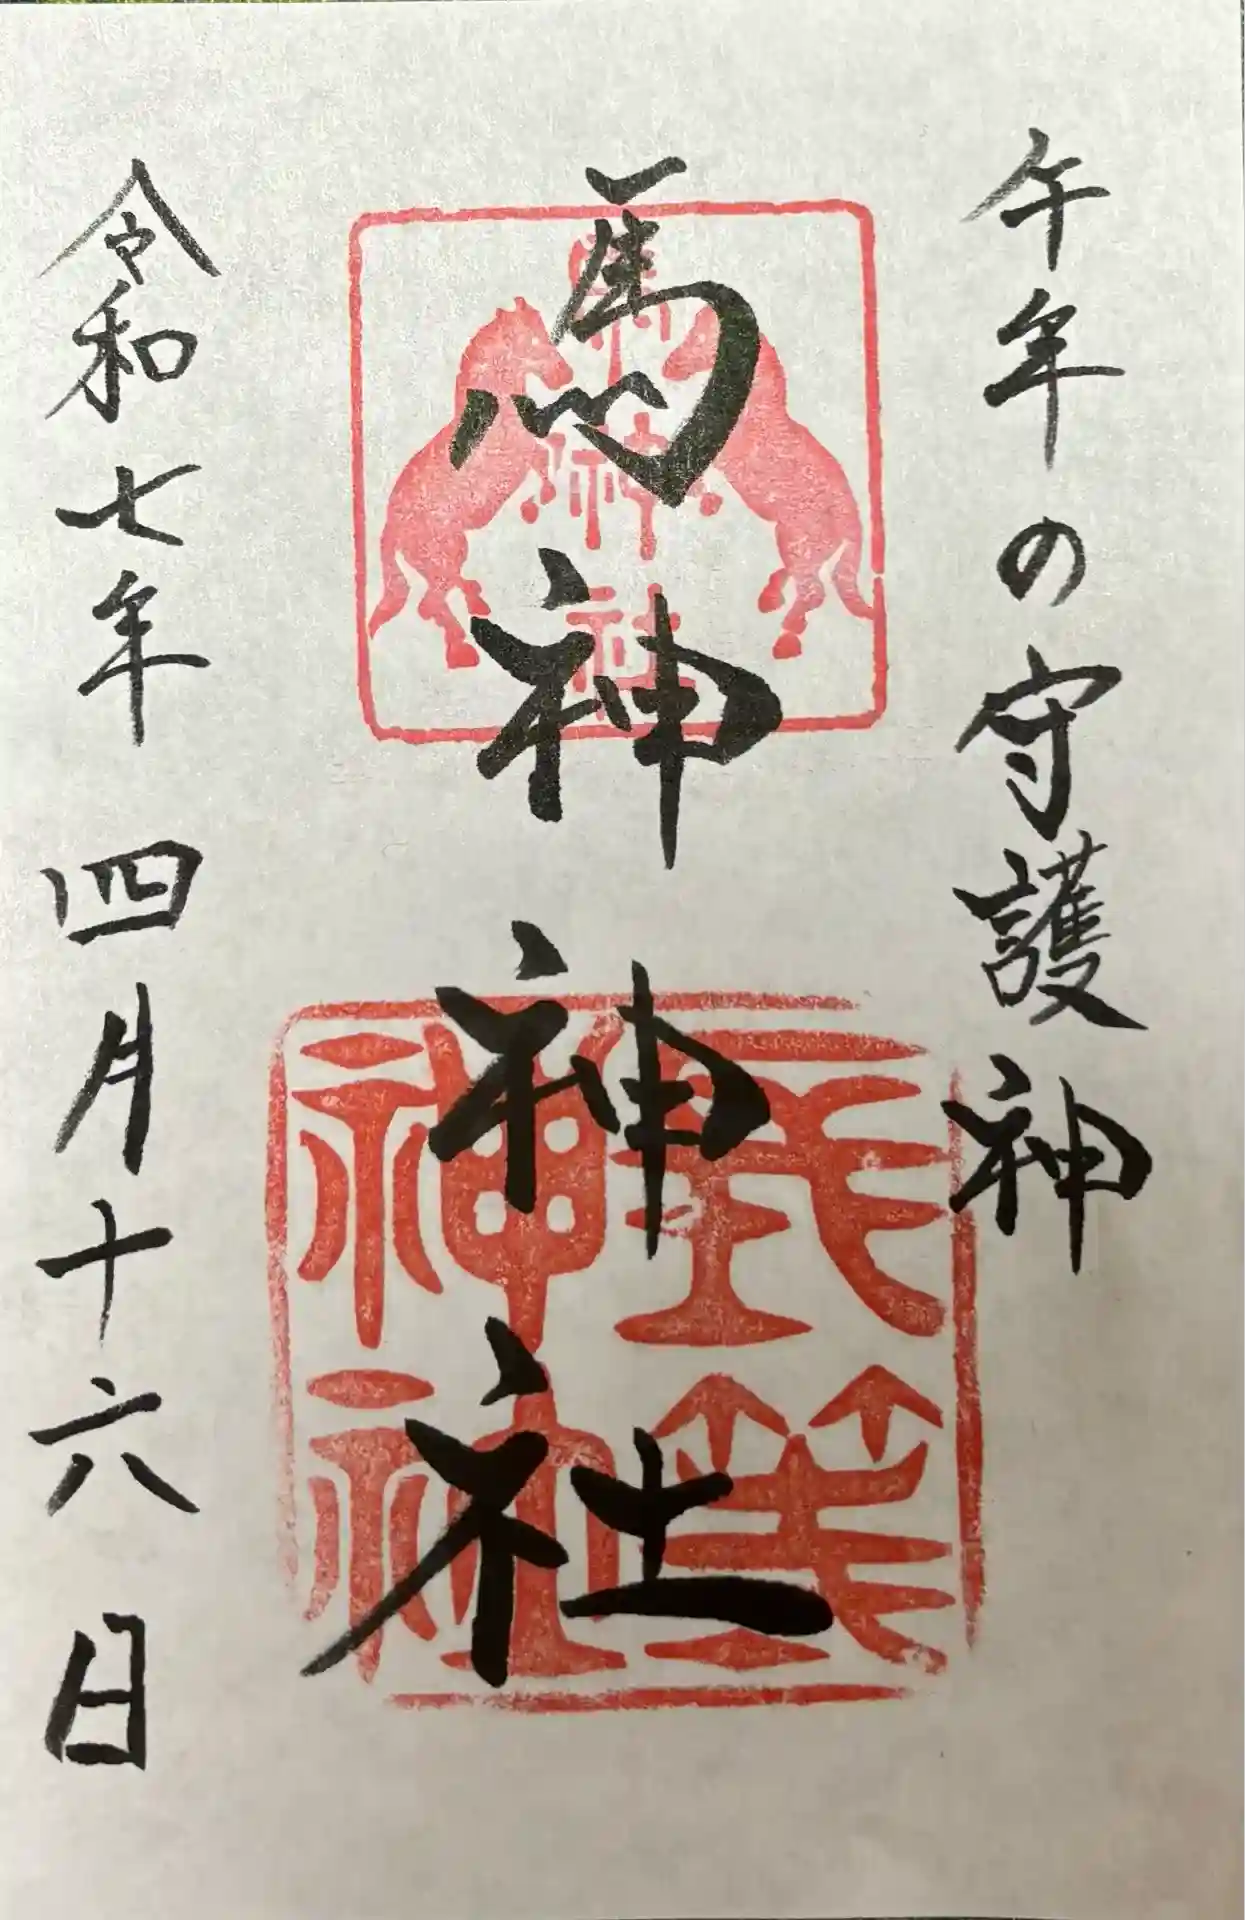 午年の守護神
馬神神社
馬神社
令和七年四月十六日